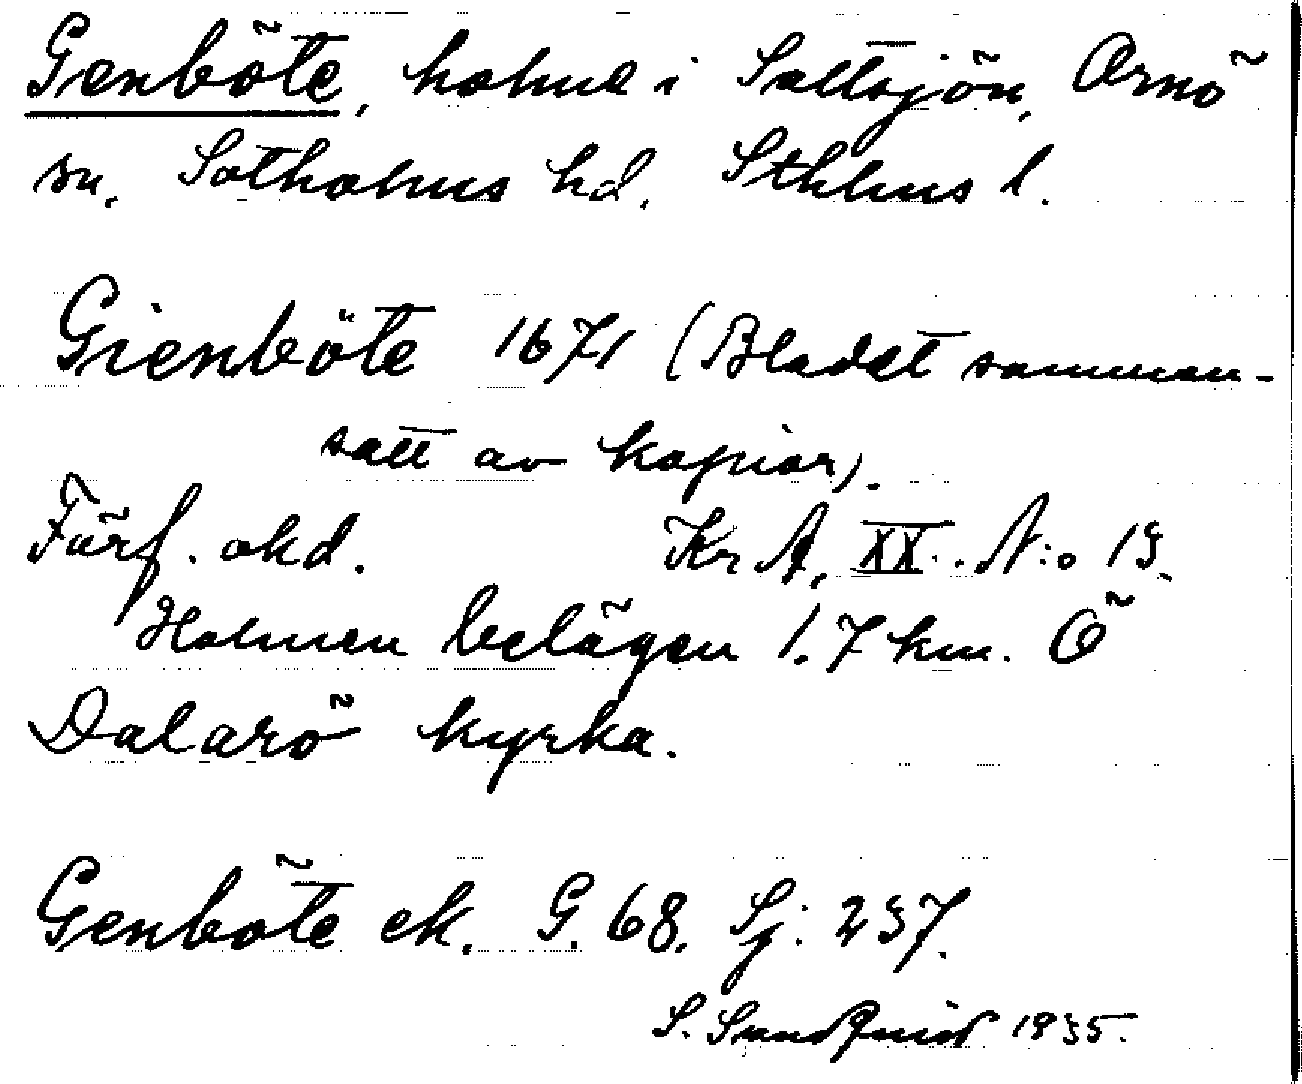 Genböte, holme i Saltsjön, Ornö
sn. Sotholms hd. Sthlms l.
Gienböte 1671 (Bladet samman-
satt av kopior).
Förf. okd. Kr A, XX. N:o 19.
Holmen belägen 1.7 km. Ö
Dalarö kyrka.
Genböte ek. G. 68. Sj: 237.
S. Sundquist 1935.